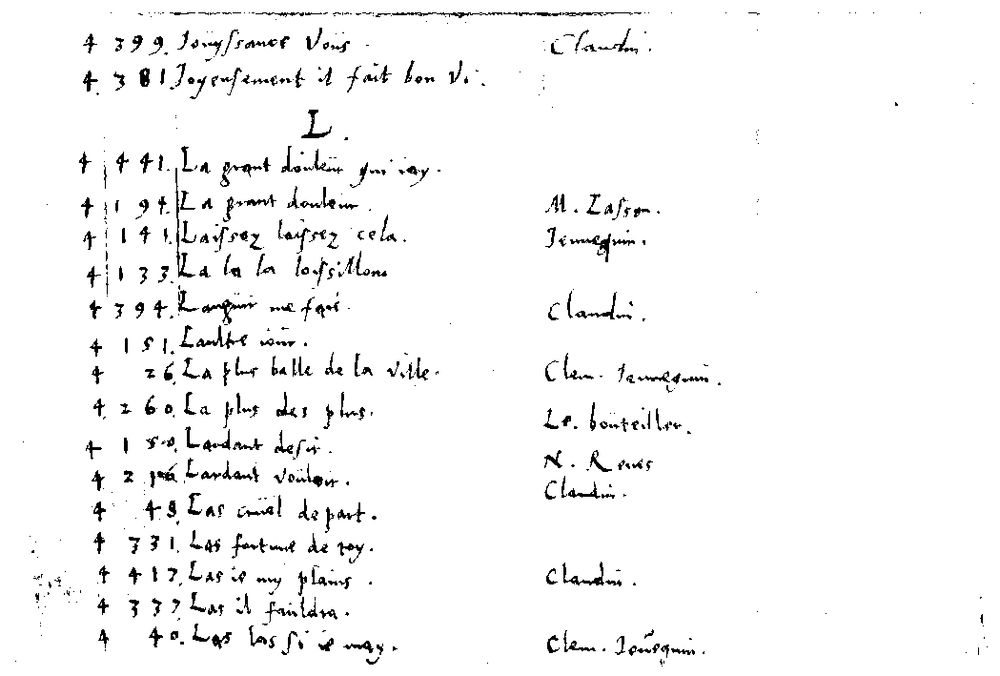 4 399. Jouyssance vous. Claudin.
4 381 Joyeusement il fait bon vi.
L.
4 441. La grant douleur qui iay.
4 194. La grant douleur. M. Lasson.
4 141. Laissez laissez cela. Jennequin.
4 133. La la la loisillon
4 394. Languir me fais. Claudin.
4 151. Laultre iour.
4 26. La plus balle de la ville. Clem. Jennequin.
4 260. La plus des plus. Le. bouteiller.
4 150. Lardant desir. N. Renes
4 2 Lardant vouloir. Claudin.
4 48. Las cruel depart.
4 331. Las fortune de toy.
4 417. Las ie my plains. Claudin.
4 337. Las il fauldra.
4 40. Las las si ie may. Clem. Jenequin.